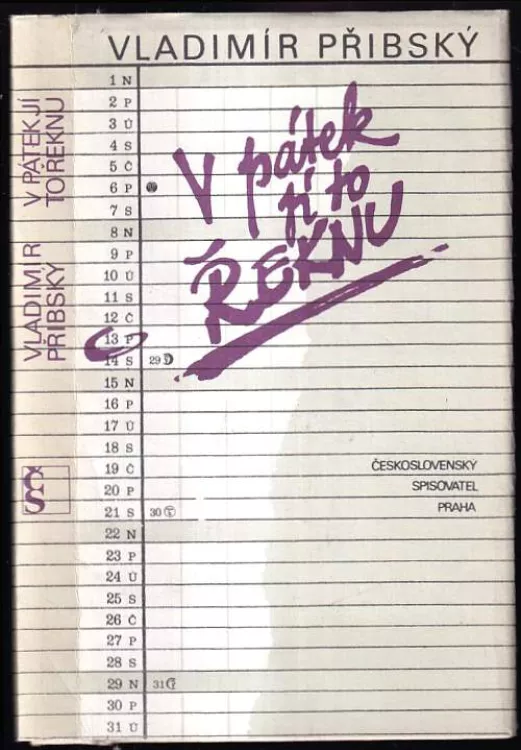 VLADIMÍR PŘIBSKÝ
V PÁTEK JÍ
TO ŘEKNU
VLADIMÍR
PŘIBSKÝ
ČS
1 N
2 P
3 Ú
4 S
5 Č
6 P
7 S
8 N
9 P
10 Ú
11 S
12 Č
13 P
14 S 29
15 N
16 P
17 Ú
18 S
19 Č
20 P
21 S 30
22 N
23 P
24 Ú
25 S
26 Č
27 P
28 S
29 N 31
30 P
31 Ú
V pátek
jí to
ŘEKNU
ČESKOSLOVENSKÝ
SPISOVATEL
PRAHA